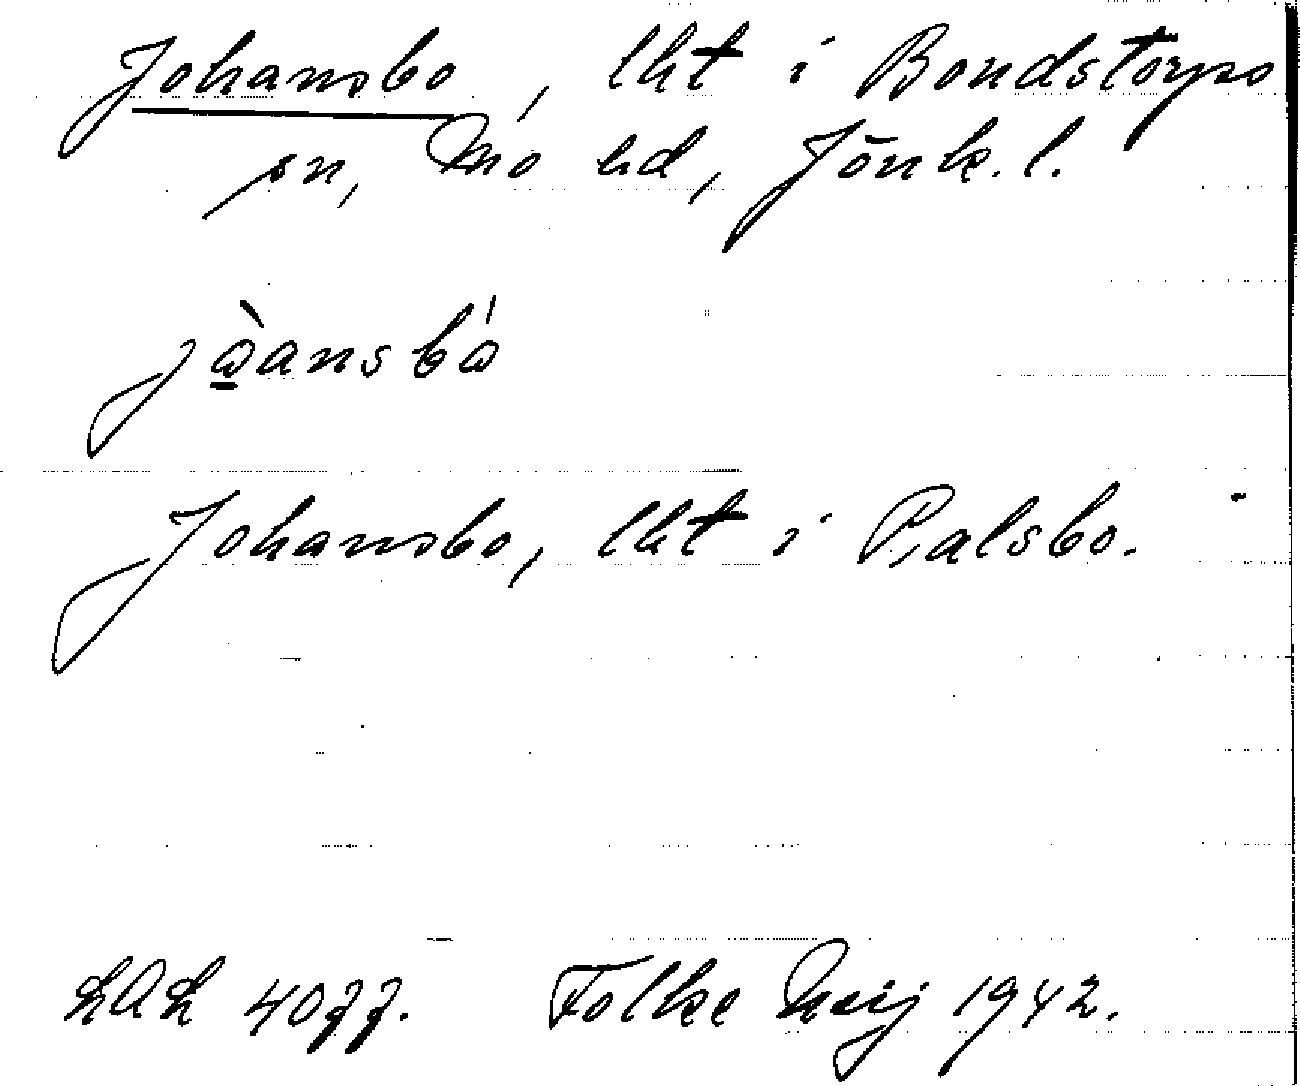 Johansbo, lht i Bondstorps
sn, Mo hd, Jönk. l.
jòansbó
Johansbo, lht i Palsbo.
LAL 4077. Folke Neij 1942.